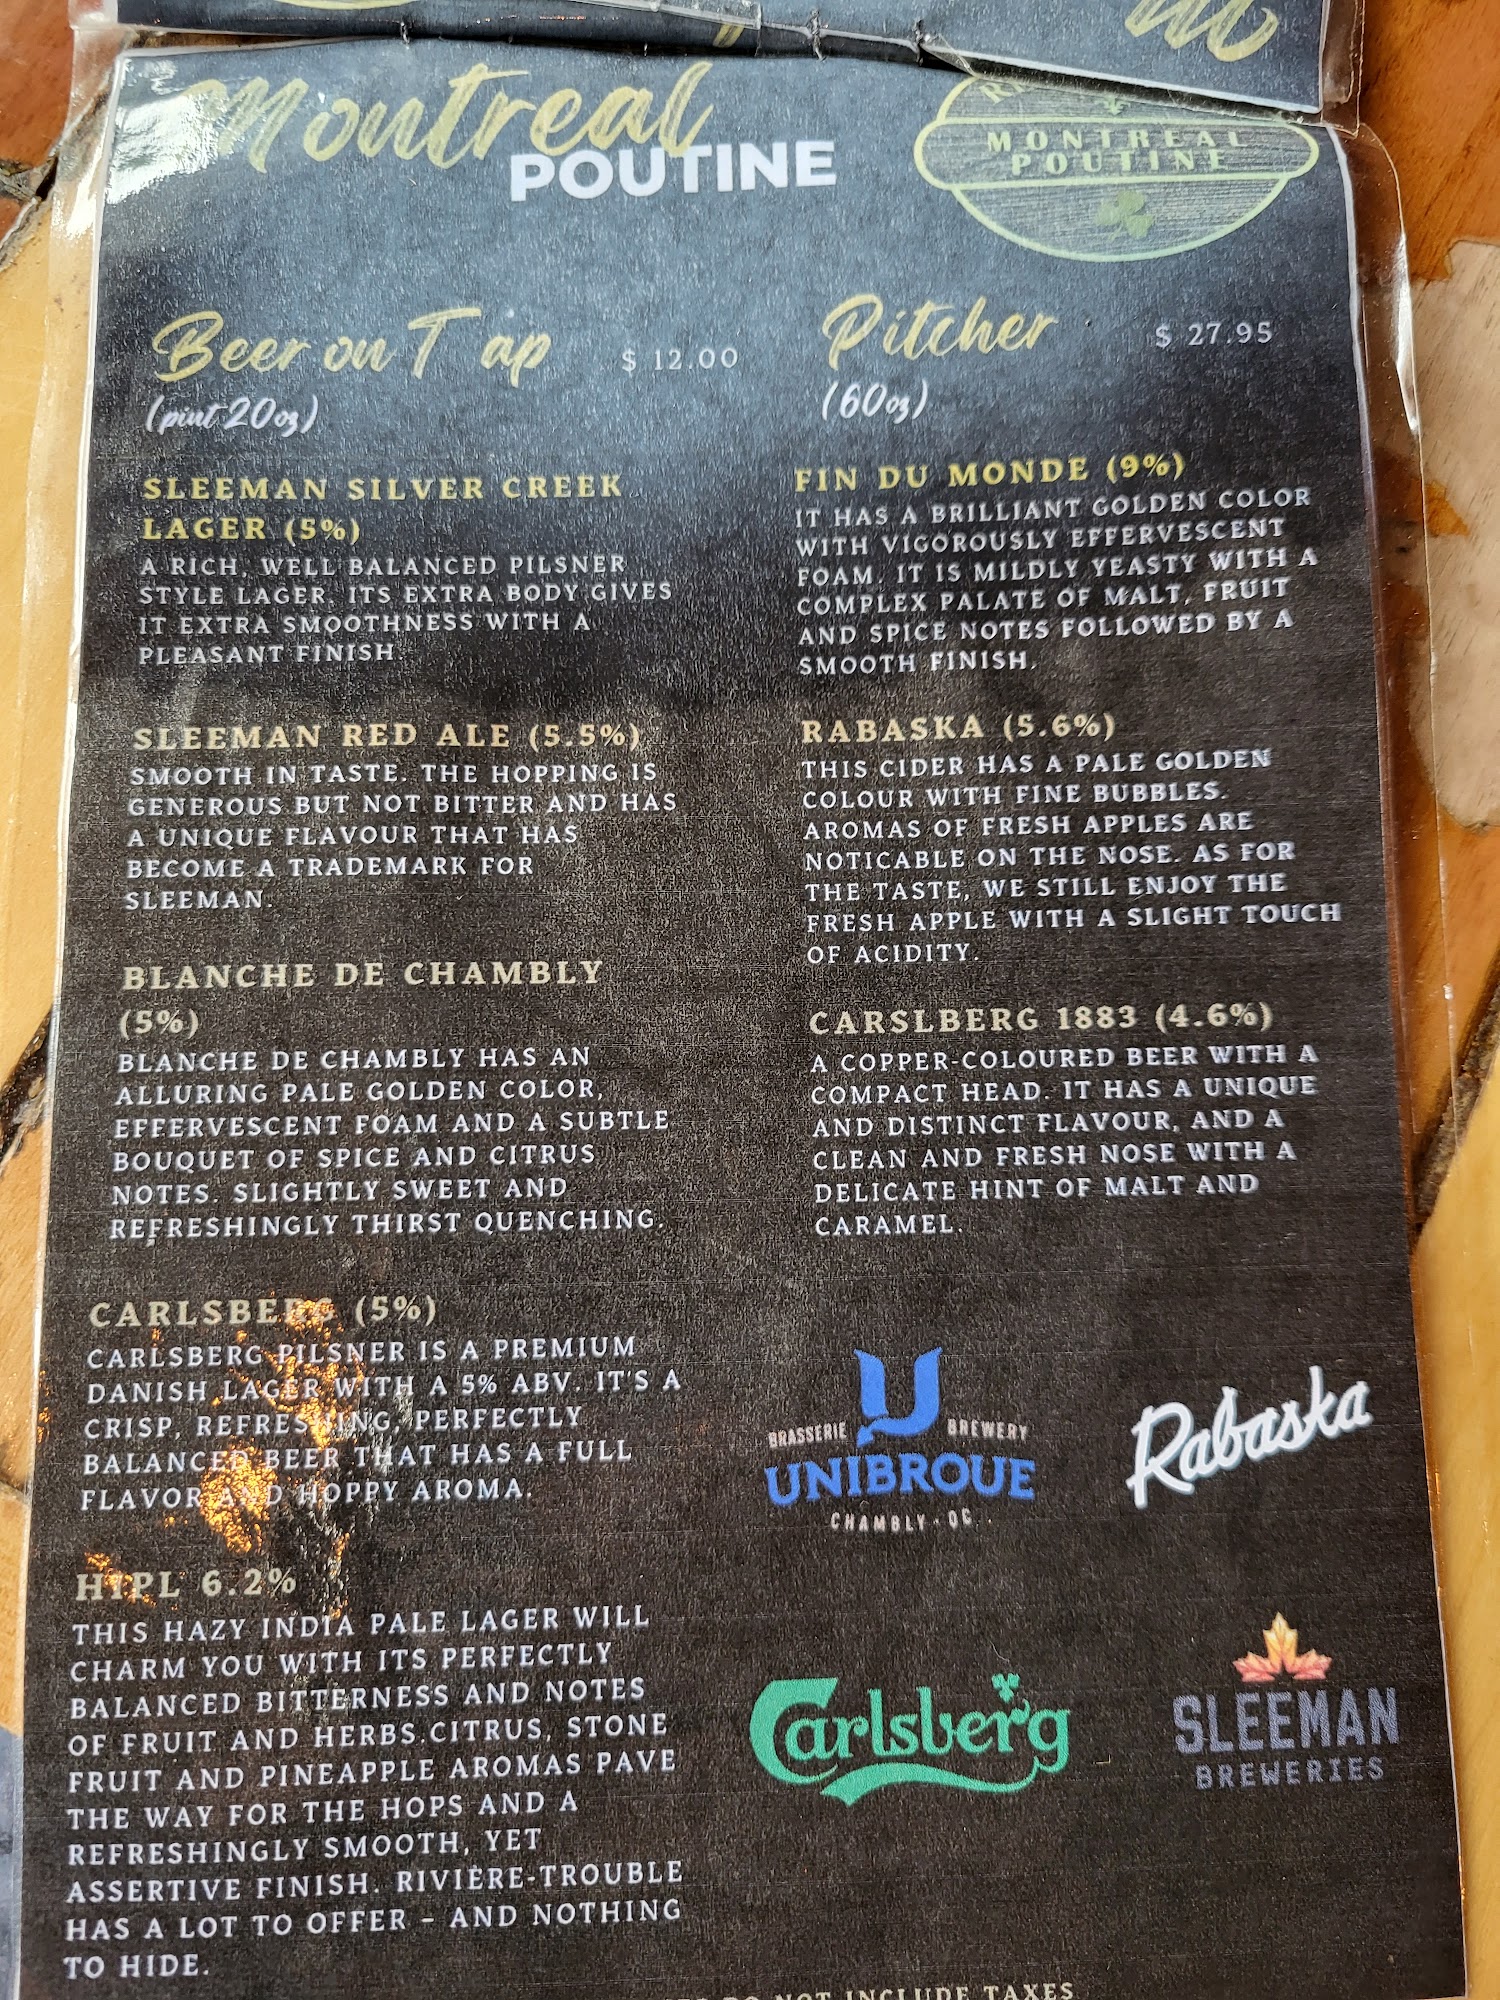 Montreal
POUTINE
MONTREAL
POUTINE
Beer on Tap $ 12.00
(pint 20oz)
SLEEMAN SILVER CREEK
LAGER (5%)
A RICH, WELL BALANCED PILSNER
STYLE LAGER. ITS EXTRA BODY GIVES
IT EXTRA SMOOTHNESS WITH A
PLEASANT FINISH
SLEEMAN RED ALE (5.5%)
SMOOTH IN TASTE. THE HOPPING IS
GENEROUS BUT NOT BITTER AND HAS
A UNIQUE FLAVOUR THAT HAS
BECOME A TRADEMARK FOR
SLEEMAN.
BLANCHE DE CHAMBLY
(5%)
BLANCHE DE CHAMBLY HAS AN
ALLURING PALE GOLDEN COLOR,
EFFERVESCENT FOAM AND A SUBTLE
BOUQUET OF SPICE AND CITRUS
NOTES. SLIGHTLY SWEET AND
REFRESHINGLY THIRST QUENCHING.
CARLSBERG (5%)
CARLSBERG PILSNER IS A PREMIUM
DANISH LAGER WITH A 5% ABV. IT'S A
CRISP, REFRESHING, PERFECTLY
BALANCED BEER THAT HAS A FULL
FLAVOR AND HOPPY AROMA.
HIPL 6.2%
THIS HAZY INDIA PALE LAGER WILL
CHARM YOU WITH ITS PERFECTLY
BALANCED BITTERNESS AND NOTES
OF FRUIT AND HERBS.CITRUS, STONE
FRUIT AND PINEAPPLE AROMAS PAVE
THE WAY FOR THE HOPS AND A
REFRESHINGLY SMOOTH, YET
ASSERTIVE FINISH. RIVIÈRE-TROUBLE
HAS A LOT TO OFFER - AND NOTHING
TO HIDE.
Pitcher $ 27.95
(60oz)
FIN DU MONDE (9%)
IT HAS A BRILLIANT GOLDEN COLOR
WITH VIGOROUSLY EFFERVESCENT
FOAM. IT IS MILDLY YEASTY WITH A
COMPLEX PALATE OF MALT, FRUIT
AND SPICE NOTES FOLLOWED BY A
SMOOTH FINISH.
RABASKA (5.6%)
THIS CIDER HAS A PALE GOLDEN
COLOUR WITH FINE BUBBLES.
AROMAS OF FRESH APPLES ARE
NOTICABLE ON THE NOSE. AS FOR
THE TASTE, WE STILL ENJOY THE
FRESH APPLE WITH A SLIGHT TOUCH
OF ACIDITY.
CARSLBERG 1883 (4.6%)
A COPPER-COLOURED BEER WITH A
COMPACT HEAD. IT HAS A UNIQUE
AND DISTINCT FLAVOUR, AND A
CLEAN AND FRESH NOSE WITH A
DELICATE HINT OF MALT AND
CARAMEL.
U
BRASSERIE BREWERY
UNIBROUE
CHAMBLY · QC
Rabaska
Carlsberg
SLEEMAN
BREWERIES
DO NOT INCLUDE TAXES